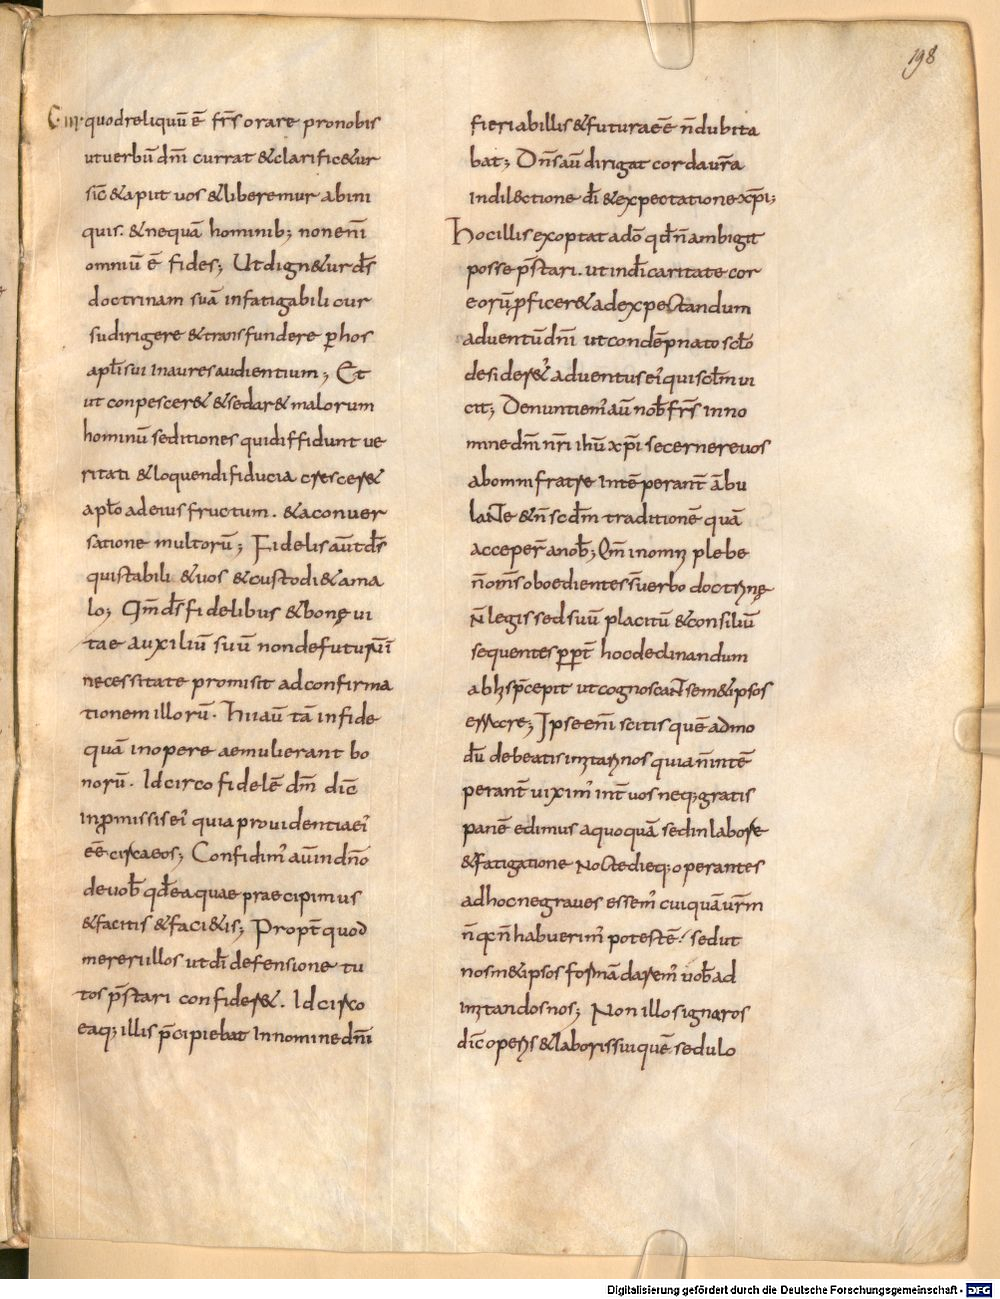 198
C. III. quodreliquū ē fr̄s orare pronobis
utuerbū dn̄i currat &clarific&ur
sic̄ &aput uos &liberemur abini
quis. &nequā hominib; nonenī
omniū ē fides; Utdign&ur ds̄
doctrinam suā infatigabili cur
sudirigere &transfundere phos
aplīsui inauresaudientium; Et
ut conpescer& &sedar& malorum
hominū seditiones quidiffidunt ue
ritati &loquendifiducia crescer&
aplō adeius fructum. &aconuer
satione multorū; Fidelisaūtds̄
quistabili &uos &custodi&ama
lo; Qm̄ds̄ fidelibus &bonę ui
tae auxiliū suū nondefuturū ī
necessitate promisit adconfirma
tionem illorū. Hiiaū tā infide
quā inopere aemulierant bo
norū. Idcirco fidelē dm̄ dic̄
inpmissisei' quia prouidentiaei'
eē circaeos; Confidim' aūindnō
deuob̄ qd̄eaquae praecipimus
&facitis &faci&is; Propt̄ quod
mererillos utdī defensione tu
tos p̄stari confider&. Idcirco
eaq; illis p̄cipiebat Innominedn̄i
fieriabillis&futuraeē n̄dubita
bat; Dn̄saū dirigat cordaur̄a
Indil&ctione dī &expectationexp̄i;
Hocillisexoptatadō qd̄n̄ambigit
posse p̄stari. utindīcaritate cor
eorūpficer&adexpectandum
aduentūdn̄i utcondēpnato sclō
desider& aduentusei'quisclm̄ ui
cit; Denuntiem'aū nob̄fr̄s inno
minedn̄inr̄i ihūxp̄i secernereuos
abomnifratre intēperant̄ ābu
laNte &n̄scdm̄ traditionē quā
acceper̄anob̄; Qm̄ inomni plebe
n̄om̄soboedientess̄uerbo doctrinę
N̄legis sedsuū placitū &consiliū
sequentesppt̄ hocdeclinandum
abhisp̄cepit utcognoscaNt sem&ipsos
essacre; Ipseenī scitis quē admo
dū debeatisimitarinos quian̄intē
perant̄ uixim' int̄ uos neq;gratis
panē edimus aquoquā sedinlabore
&fatigatione Noctedieq;operantes
adhocnegraues essem' cuiquāur̄m
n̄qin̄habuerim' potestē; sedut
nosm&ipsos formādarem' uob̄ad
imitandosnos; Non illosignaros
dic̄operis&laborissuiquē sedulo
Digitalisierung gefördert durch die Deutsche Forschungsgemeinschaft - DFG